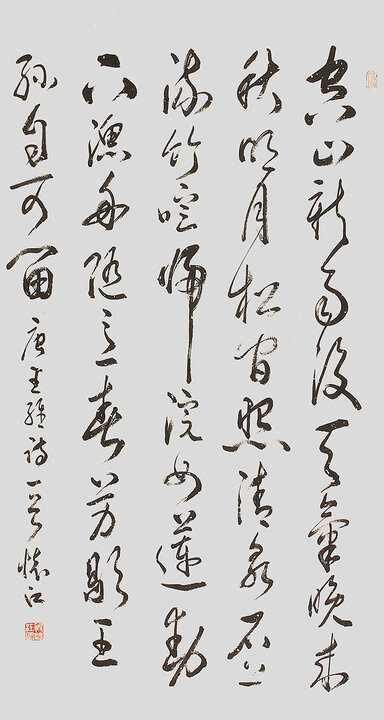 空山新雨後天氣晚来
秋明月松間照清泉石上
流竹喧歸浣女蓮動
下漁舟隨意春芳歇王
孫自可留 唐王維詩一首 懷江